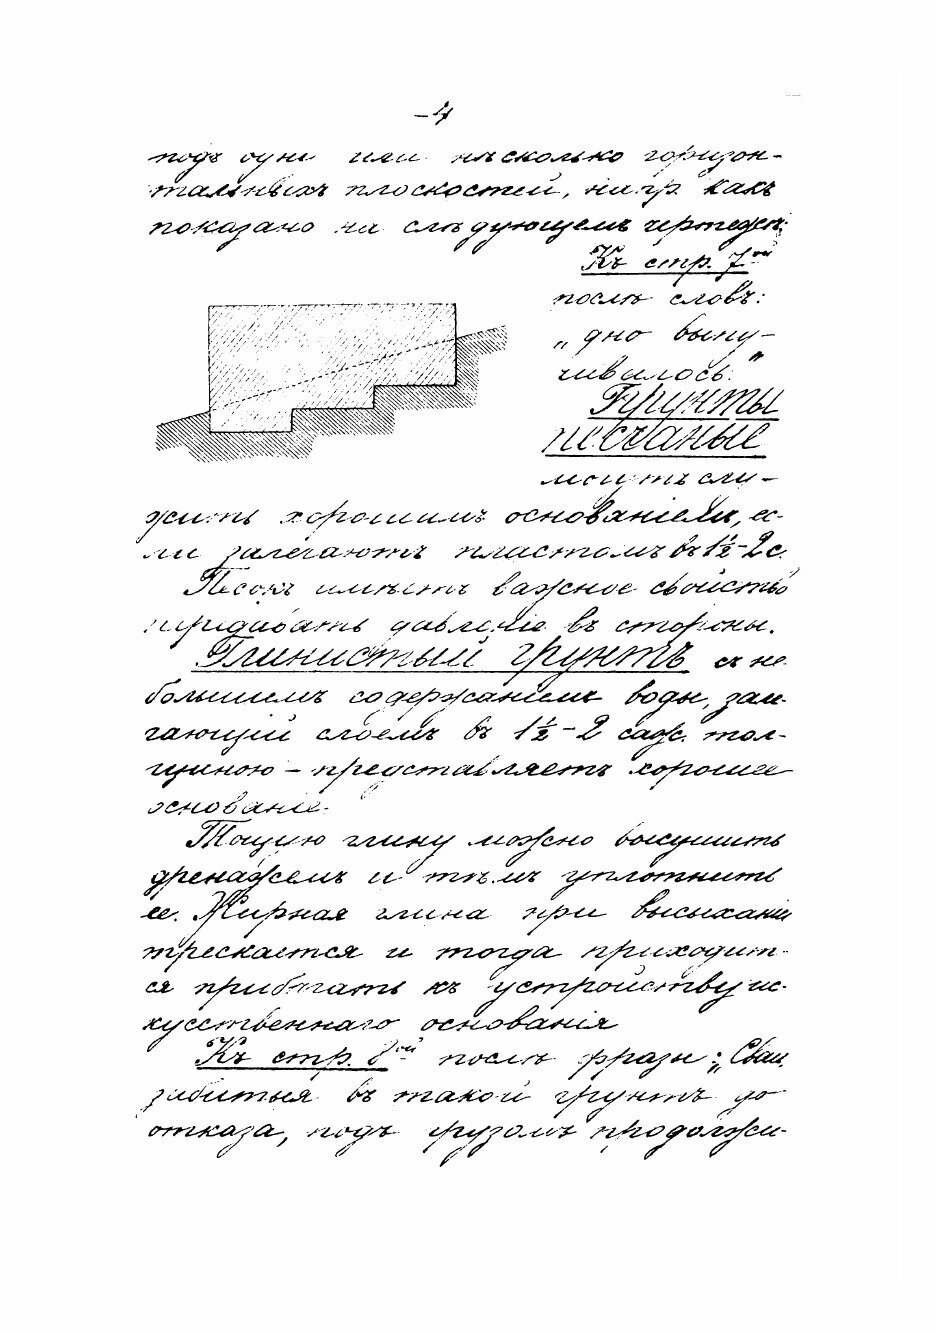 -4
подъ одну или нѣсколько горизон-
тальныхъ плоскостей, напр. какъ
показано на слѣдующемъ чертежѣ:
Къ стр. 7ой
послѣ словъ:
„дно выпу-
чивалось."
Грунты
песчаные
могутъ слу-
жить хорошимъ основаніемъ, ес-
ли залегаютъ пластомъ въ 1½-2 с.
Песокъ имѣетъ важное свойство
передавать давленіе въ стороны.
Глинистый грунтъ съ не
большимъ содержаніемъ воды, зале-
гающій слоемъ въ 1½-2 саж. тол-
щиною – представляетъ хорошее
основаніе.
Тощую глину можно высушить
дренажемъ и тѣмъ уплотнить
ее. Жирная глина при высыханіи
трескается и тогда приходит-
ся прибѣгать къ устройству ис-
кусственнаго основанія
Къ стр. 8ой послѣ фразы: „Сваи,
забитыя въ такой грунтъ до
отказа, подъ грузомъ продолжа-